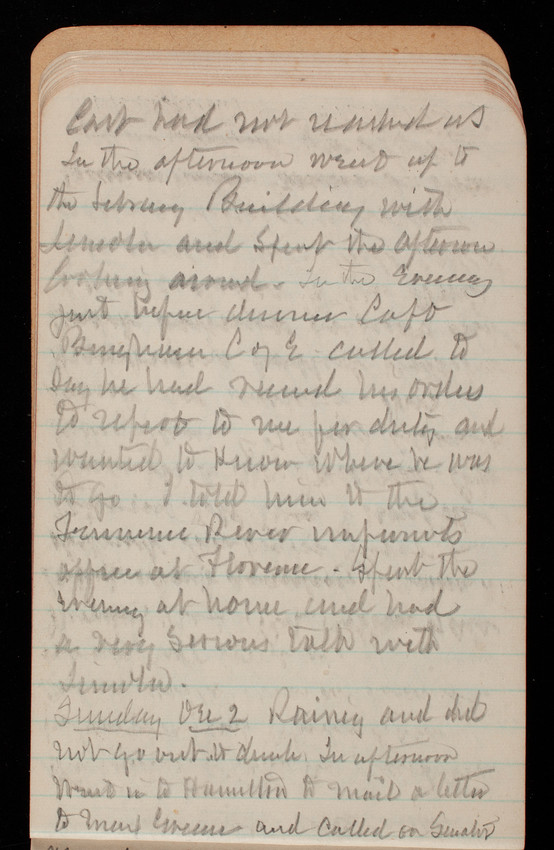 Cart had not reached us
In the afternoon went up to
the Library Building with
Lincoln and spent the afternoon
looking around. In the Evening
just before dinner Capt
C of E called to
say he had recived his orders
to report to me for duty and
wanted to know where he was
to go. I told him to the
Tennessee River improvmts
office at Florence. Spent the
Evening at home and had
a very serious talk with
Lincoln.
Sunday Dec 2 Rainey and did
not go out to church In afternoon
went in to Hamilton to mail a letter
to Greene and called on Senator